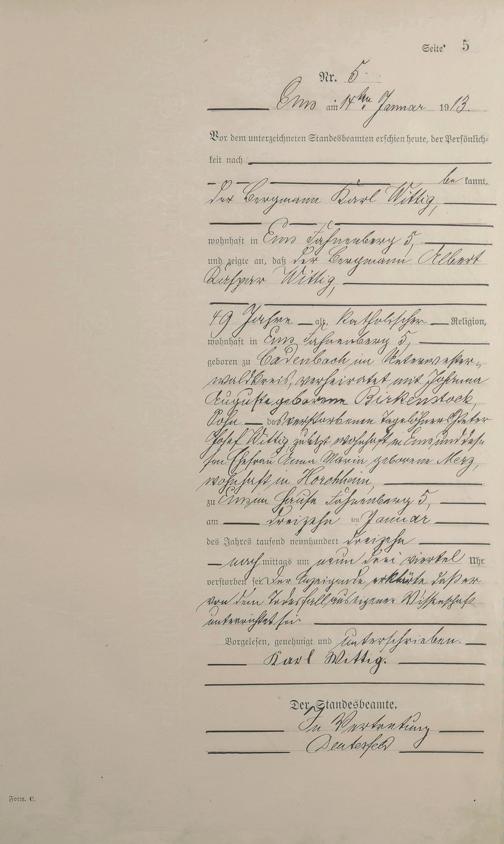 Seite 5
Nr. 5
Ems am 14ten Januar 1913.
Vor dem unterzeichneten Standesbeamten erschien heute, der Persönlich-
keit nach
be kannt,
der Bergmann Karl Wittig,
wohnhaft in Ems Fahnenberg 5,
und zeigte an, daß der Bergmann Albert
Kaspar Wittig,
49 Jahre alt, katholischer Religion,
wohnhaft in Ems, Fahnenberg 5,
geboren zu Cadenbach im Unterwester-
waldkreis, verheiratet mit Johanna
Auguste geborene Birkenstock,
Sohn des verstorbenen Tagelöhners Peter
Josef Wittig zuletzt wohnhaft in Ems und dessen
Ehefrau Anna Maria, geborene Merz,
wohnhaft in Horchheim,
zu Ems im Hause Fahnenberg 5,
am dreizehn ten Januar
des Jahres tausend neunhundert dreizehn
nach mittags um neun drei viertel Uhr
verstorben sei. Der Anzeigende erklärte daß er
von dem Todesfall aus eigener Wissenschaft
unterrichtet sei.
Vorgelesen, genehmigt und unterschrieben.
Karl Wittig.
Der Standesbeamte.
In Vertretung
Form. C.